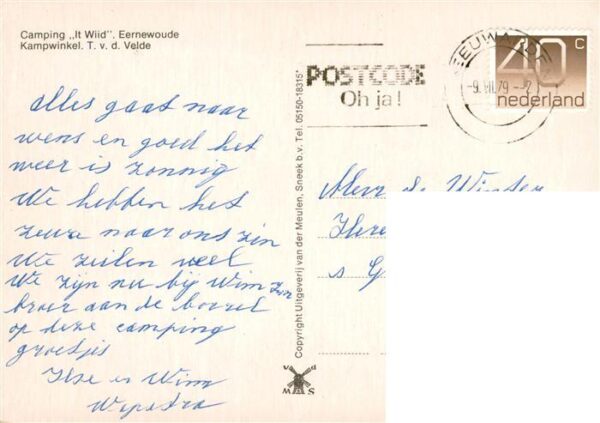 Camping „It Wiid”. Eernewoude
Kampwinkel. T. v. d. Velde
alles gaat naar
wens en goed het
weer is zonnig
We hebben het
zeer naar ons zin
We zeilen veel
We zijn nu bij Wim zijn
broer aan de boezel
op deze camping
groetjis
Ilse en Wim
Wypstra
Copyright Uitgeverij van der Meulen, Sneek b.v. Tel. 05150-18315*
v D
M S W
POSTCODE
Oh ja!
LEEUWARD
-9.VII.79
40 C
nederland
Mevr de Winter
Here
s G